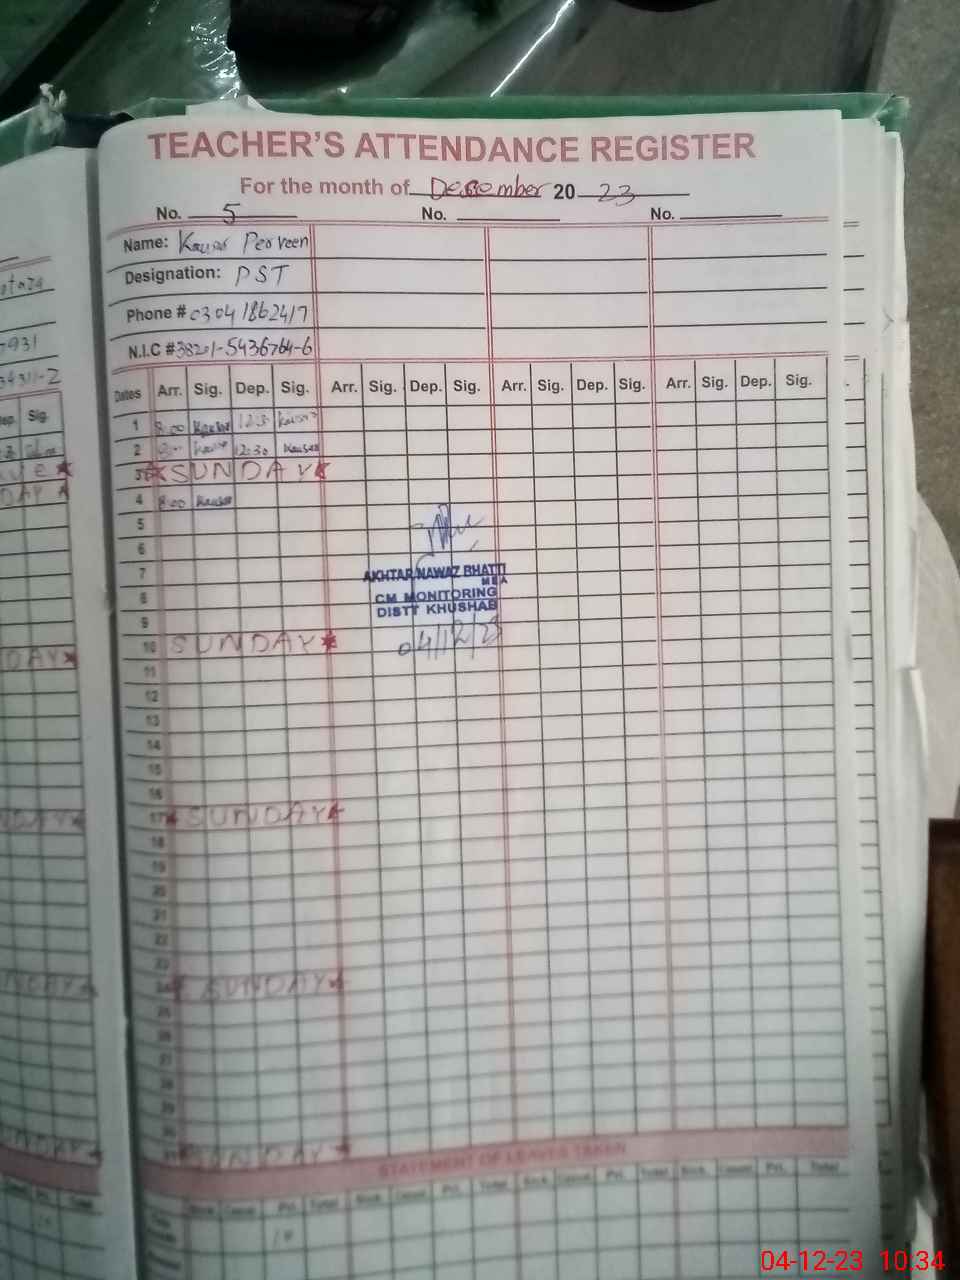 TEACHER'S ATTENDANCE REGISTER
For the month of December 20 23
No. 5 No. No.
Name: Kausar Perveen
Designation: PST
Phone # 03041862417
N.I.C #38201-5436764-6
Dates Arr. Sig. Dep. Sig. Arr. Sig. Dep. Sig. Arr. Sig. Dep. Sig. Arr. Sig. Dep. Sig.
1 8:00 Kausar 12:30 Kausar
2 8:00 Kausar 12:30 Kausar
3 SUNDAY
4 8:00 Kausar
5
6
7
8
9
10 SUNDAY
11
12
13
14
15
16
17 SUNDAY
18
19
20
21
22
23
24 SUNDAY
25
26
27
28
29
30
31 SUNDAY
AKHTAR NAWAZ BHATTI
MEA
CM MONITORING
DISTT KHUSHAB
04/12/23
STATEMENT OF LEAVES TAKEN
Sick. Casual Pri. Total Sick. Casual Pri. Total Sick. Casual Pri. Total Sick. Casual Pri. Total
10
04-12-23 10:34